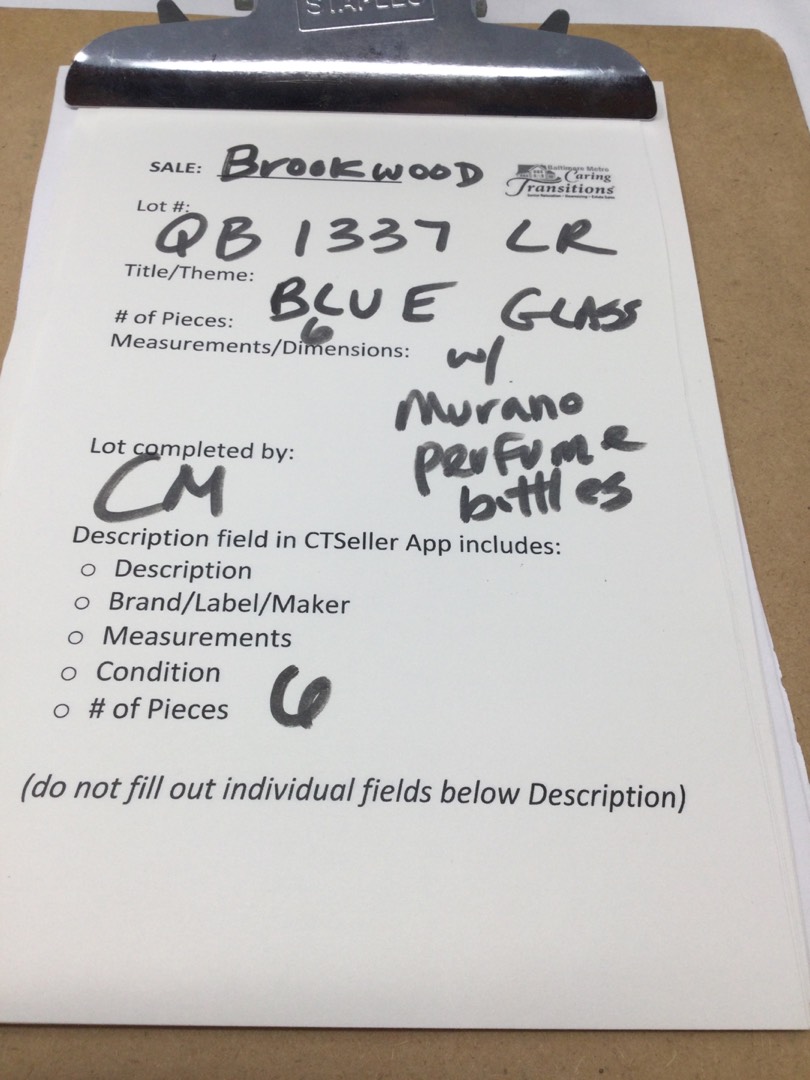 STAPLES
SALE: Brookwood
Baltimore Metro
Caring
Transitions
Lot #:
QB 1337 LR
Title/Theme:
BLUE GLASS
# of Pieces:
6
Measurements/Dimensions:
w/
Murano
perfume
bottles
Lot completed by:
CM
Description field in CTSeller App includes:
○ Description
○ Brand/Label/Maker
○ Measurements
○ Condition
○ # of Pieces 6
(do not fill out individual fields below Description)